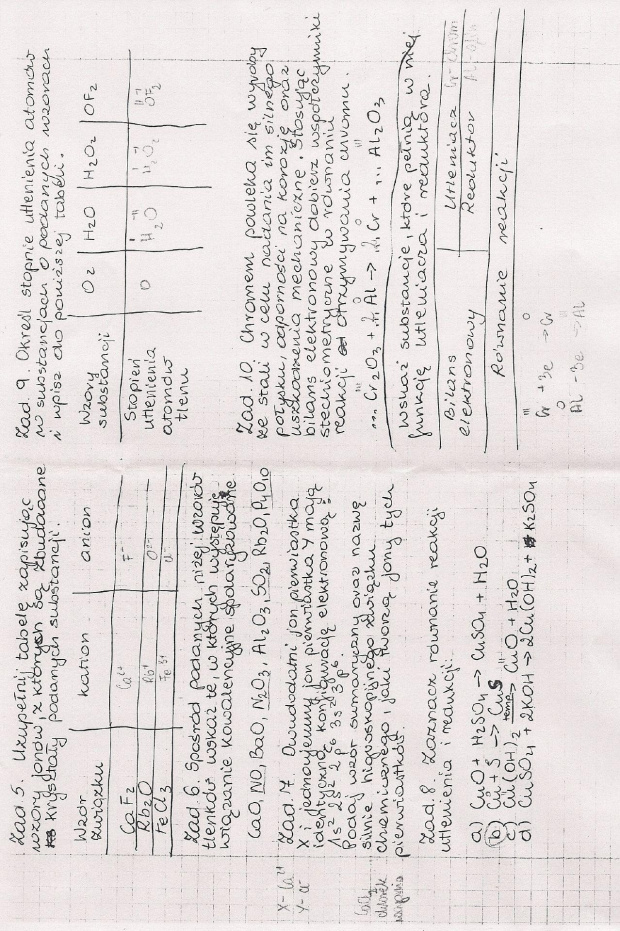 Zad. 5. Uzupełnij tabelę zapisując
wzory jonów, z których są zbudowane
kryształy podanych substancji.
Wzór związku | kation | anion
CaF2 | Ca²⁺ | F⁻
Rb2O | Rb⁺ | O²⁻
FeCl3 | Fe³⁺ | Cl⁻
Zad. 6. Spośród podanych niżej wzorów
tlenków wskaż te, w których występuje
wiązanie kowalencyjne spolaryzowane
CaO, NO, BaO, N2O3, Al2O3, SO2, Rb2O, P4O10
Zad. 7. Dwudodatni jon pierwiastka
X i jednoujemny jon pierwiastka Y mają
identyczną konfigurację elektronową:
1s² 2s² 2p⁶ 3s² 3p⁶.
Podaj wzór sumaryczny oraz nazwę
silnie higroskopijnego związku
chemicznego, jaki tworzą jony tych
pierwiastków.
X - Ca²⁺
Y - Cl⁻
CaCl2
chlorek
wapnia
Zad. 8. Zaznacz równanie reakcji
utlenienia i redukcji.
a) CuO + H2SO4 → CuSO4 + H2O
b) Cu + S → CuS
c) Cu(OH)2 temp→ CuO + H2O
d) CuSO4 + 2KOH → 2Cu(OH)2 + K2SO4
Zad. 9. Określ stopnie utlenienia atomów
w substancjach o podanych wzorach
i wpisz do poniższej tabeli.
Wzory substancji | O2 | H2O | H2O2 | OF2
Stopień utlenienia atomów tlenu | 0 | H2O | H2O2 | OF2
Zad. 10. Chromem powleka się wyroby
ze stali w celu nadania im silnego
połysku, odporności na korozję oraz
uszkodzenia mechaniczne. Stosując
bilans elektronowy dobierz współczynniki
stechiometryczne w równaniu
reakcji otrzymywania chromu.
... Cr2O3 + .2. Al → .2. Cr + ... Al2O3
wskaż substancje, które pełnią w niej
funkcję utleniacza i reduktora.
Bilans elektronowy | Utleniacz Cr - chrom
Reduktor Al - glin
Równanie reakcji
Cr + 3e → Cr
Al - 3e → Al